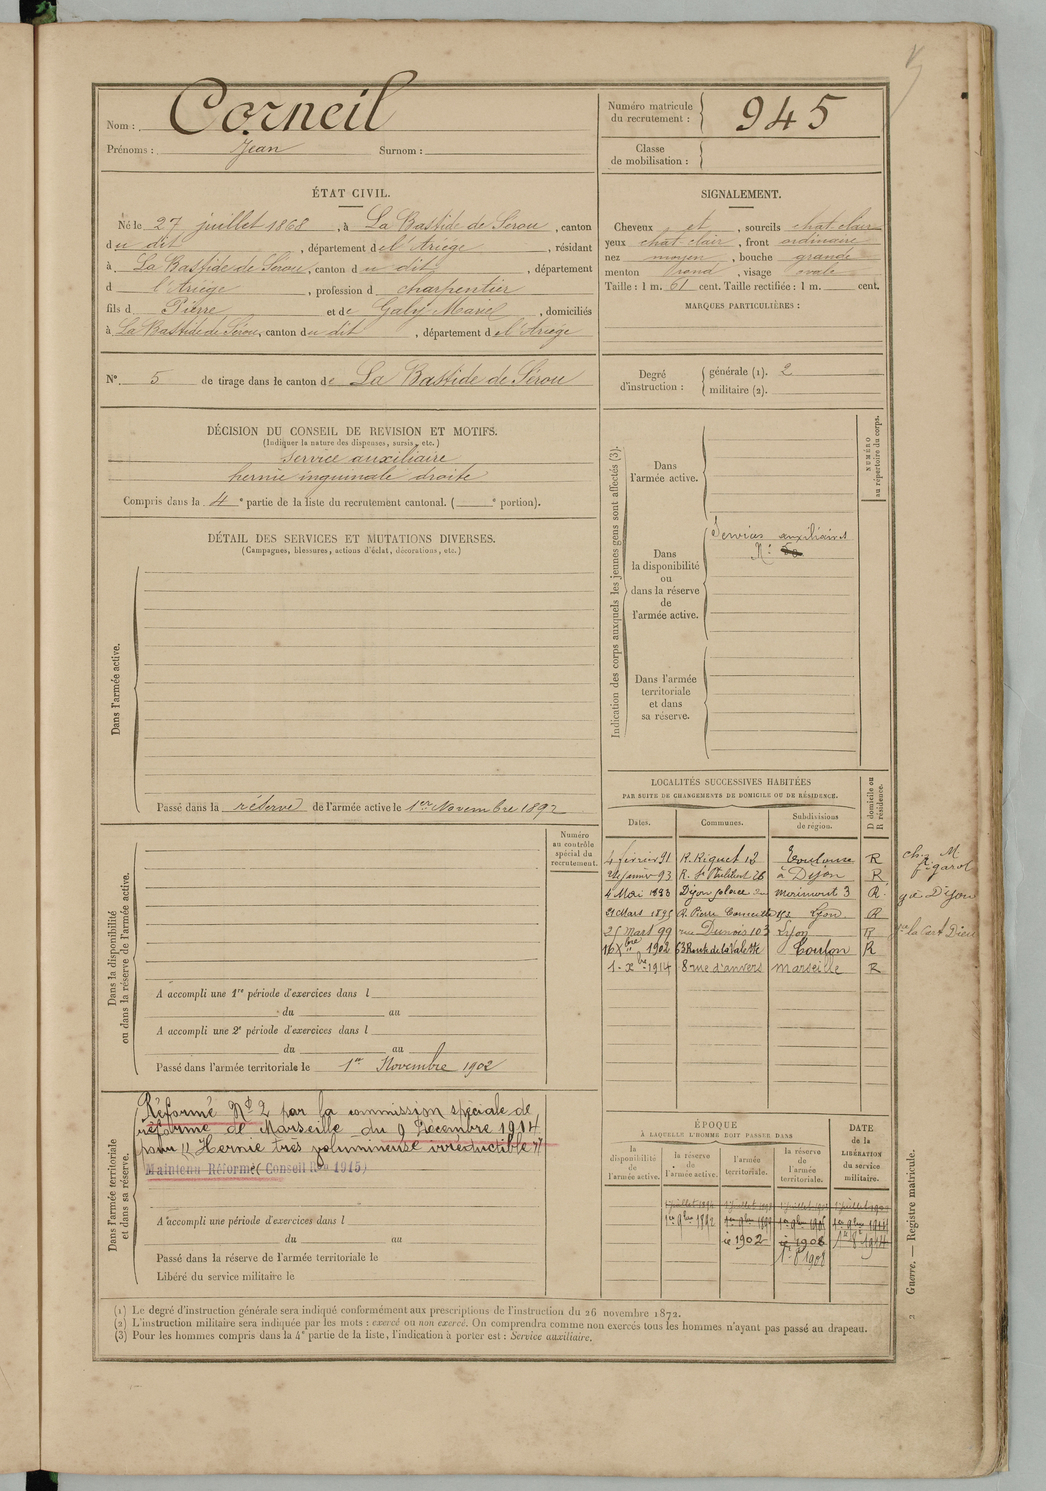 Nom : Corneil
Prénoms : Jean Surnom :
Numéro matricule
du recrutement : 945
Classe
de mobilisation :
ÉTAT CIVIL.
Né le 27 juillet 1868, à La Bastide de Sérou, canton
du dit, département de l'Ariége, résidant
à La Bastide de Sérou, canton du dit, département
d l'Ariége, profession d charpentier
fils d Pierre et de Galy Marie, domiciliés
à La Bastide de Sérou, canton du dit, département de l'Ariége
N° 5 de tirage dans le canton de La Bastide de Sérou
SIGNALEMENT.
Cheveux et, sourcils chat clair
yeux chat clair, front ordinaire
nez moyen, bouche grande
menton rond, visage ovale
Taille : 1 m. 61 cent. Taille rectifiée : 1 m. cent.
MARQUES PARTICULIÈRES :
Degré
d'instruction :
générale (1). 2
militaire (2).
DÉCISION DU CONSEIL DE REVISION ET MOTIFS.
(Indiquer la nature des dispenses, sursis, etc.)
Service auxiliaire
hernie inguinale droite
Compris dans la 4e partie de la liste du recrutement cantonal. ( e portion).
DÉTAIL DES SERVICES ET MUTATIONS DIVERSES.
(Campagnes, blessures, actions d'éclat, décorations, etc.)
Dans l'armée active.
Passé dans la réserve de l'armée active le 1er Novembre 1892
Indication des corps auxquels les jeunes gens sont affectés (3).
NUMÉRO
au répertoire du corps.
Dans
l'armée active.
Dans
la disponibilité
ou
dans la réserve
de
l'armée active.
Services auxiliaires
R:
Dans l'armée
territoriale
et dans
sa réserve.
Numéro
au contrôle
spécial du
recrutement.
Dans la disponibilité
ou dans la réserve de l'armée active.
A accompli une 1re période d'exercices dans l
du au
A accompli une 2e période d'exercices dans l
du au
Passé dans l'armée territoriale le 1er Novembre 1902
LOCALITÉS SUCCESSIVES HABITÉES
PAR SUITE DE CHANGEMENTS DE DOMICILE OU DE RÉSIDENCE.
D domicile ou
R résidence.
Dates. Communes. Subdivisions
de région.
4 février 91 R. Riquet 12 Toulouse R
janvier 93 R. St Philibert 26 à Dijon R
4 Mai 1893 Dijon place Morimont 3 R
21 Mars 1895 R. Pierre Corneille 153 Lyon R
25 Mars 99 rue Dunois 103 Lyon R
16 Xbre 1902 63 Route de la Valette Toulon R
1 - Xbre 1914 8 rue d'anvers Marseille R
Dans l'armée territoriale
et dans sa réserve.
Réformé N° 2 par la commission spéciale de
réforme de Marseille du 9 Décembre 1914
pour « Hernie très volumineuse irréductible »
Maintenu Réformé (Conseil Ron 1915)
A accompli une période d'exercices dans l
du au
Passé dans la réserve de l'armée territoriale le
Libéré du service militaire le
ÉPOQUE
À LAQUELLE L'HOMME DOIT PASSER DANS
DATE
de la
LIBÉRATION
du service
militaire.
la
disponibilité
de
l'armée active.
la réserve
de
l'armée active.
l'armée
territoriale.
la réserve
de
l'armée
territoriale.
1er 9bre 1892
ie 1902 ie 1908
1er 8 1908
(1) Le degré d'instruction générale sera indiqué conformément aux prescriptions de l'instruction du 26 novembre 1872.
(2) L'instruction militaire sera indiquée par les mots : exercé ou non exercé. On comprendra comme non exercés tous les hommes n'ayant pas passé au drapeau.
(3) Pour les hommes compris dans la 4e partie de la liste, l'indication à porter est : Service auxiliaire.
2 Guerre. — Registre matricule.